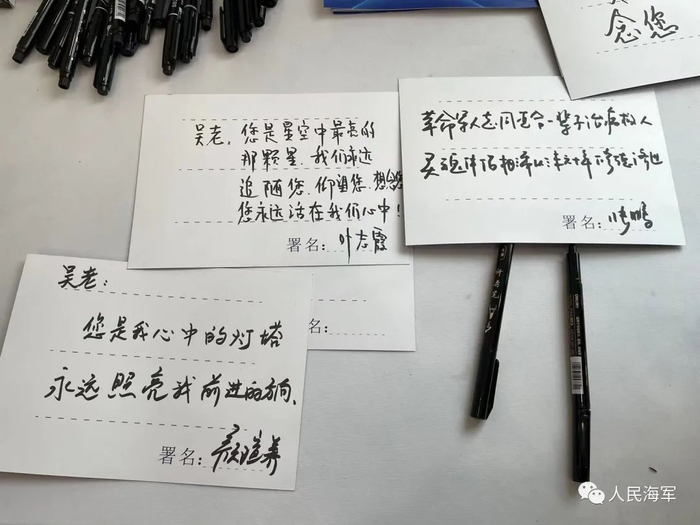 念您
吴老，您是星空中最亮的
那颗星．我们永远
追随您．仰望您．想念您
您永远活在我们心中！
署名：叶志霞
革命军人志同道合一辈子治病救人
署名：
署名：
吴老：
您是我心中的灯塔
永远照亮我前进的方向、
署名：
人民海军